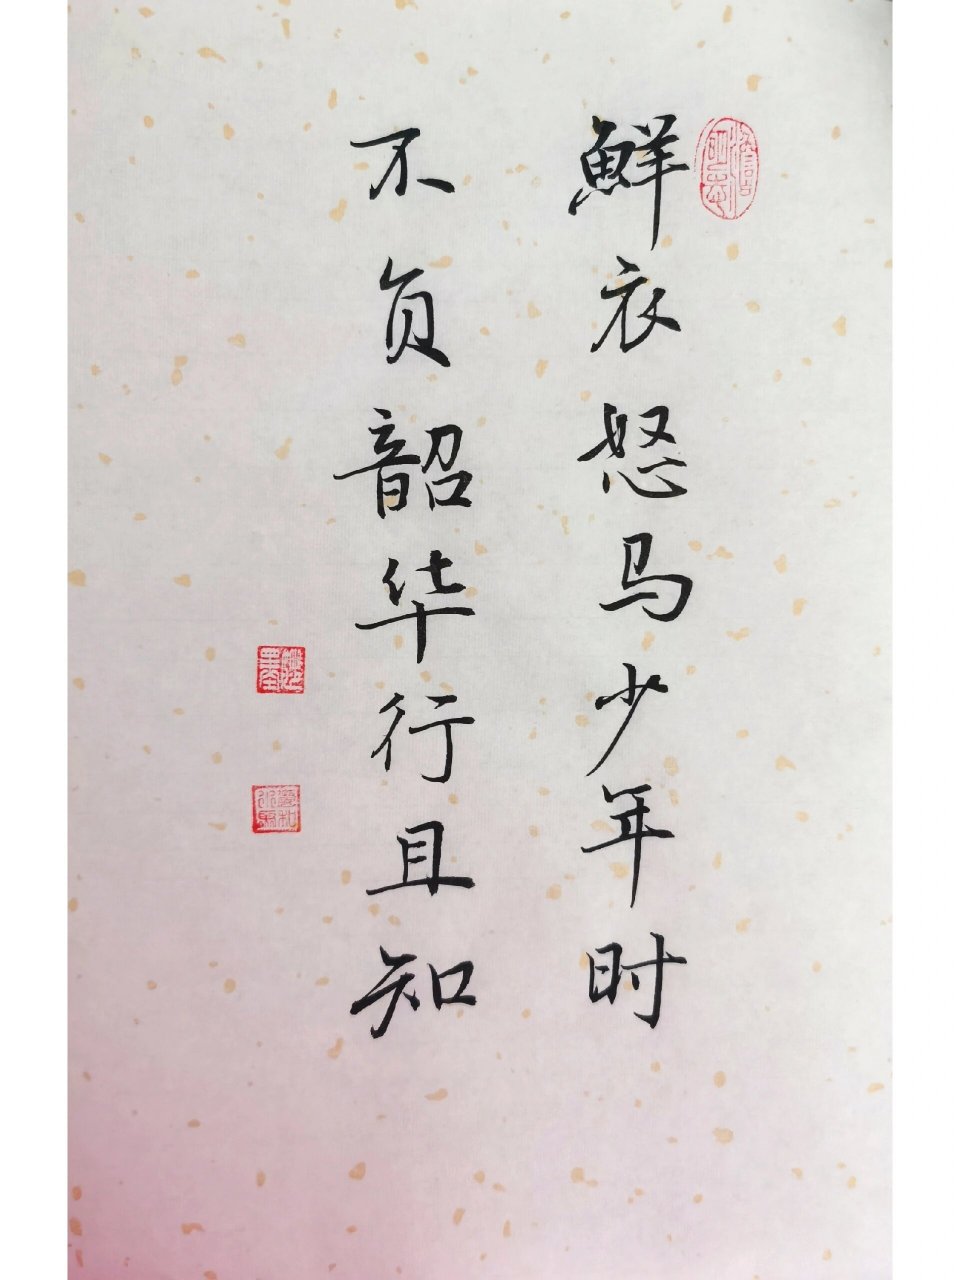 鮮衣怒马少年时
不负韶华行且知